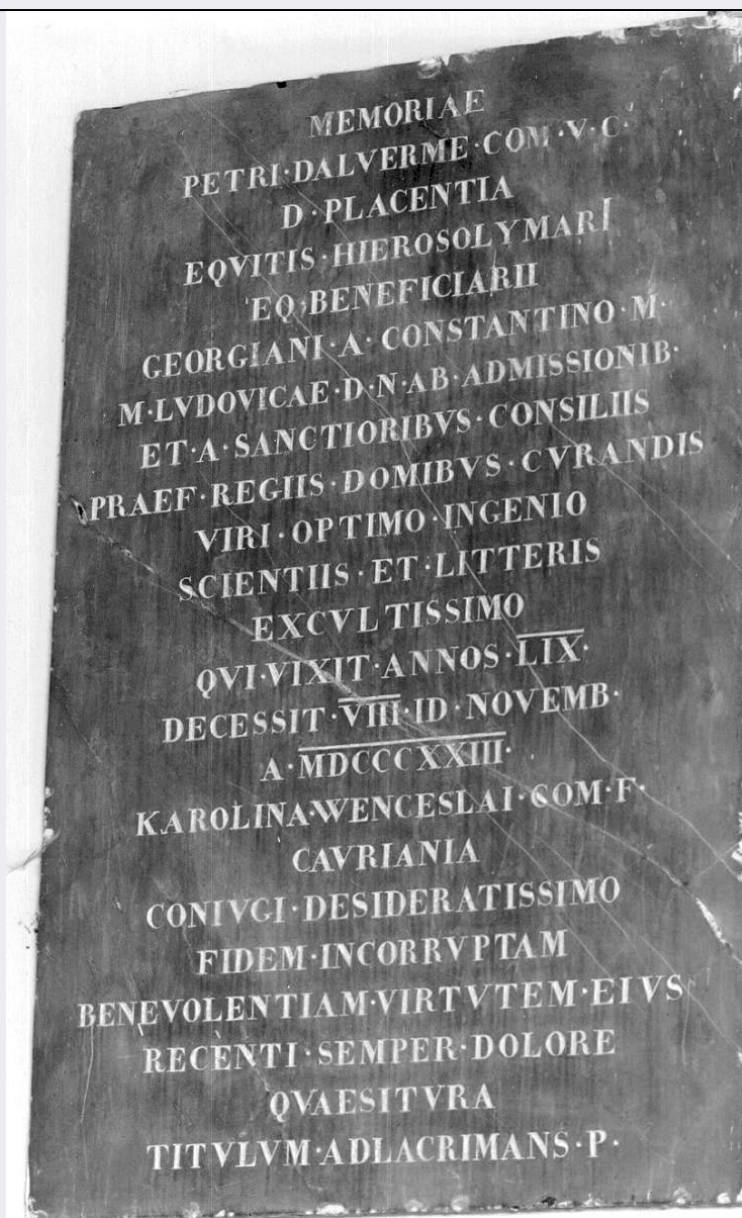 MEMORIAE
PETRI·DALVERME·COM·V·C·
D·PLACENTIA
EQVITIS·HIEROSOLYMARI
EQ·BENEFICIARII
GEORGIANI·A·CONSTANTINO·M·
M·LVDOVICAE·D·N·AB·ADMISSIONIB·
ET·A·SANCTIORIBVS·CONSILIIS
PRAEF·REGIIS·DOMIBVS·CVRANDIS
VIRI·OPTIMO·INGENIO
SCIENTIIS·ET·LITTERIS
EXCVLTISSIMO
QVI·VIXIT·ANNOS·LIX·
DECESSIT·VIII·ID·NOVEMB·
A·MDCCCXXIII·
KAROLINA·WENCESLAI·COM·F·
CAVRIANIA
CONIVGI·DESIDERATISSIMO
FIDEM·INCORRVPTAM
BENEVOLENTIAM·VIRTVTEM·EIVS
RECENTI·SEMPER·DOLORE
QVAESITVRA
TITVLVM·ADLACRIMANS·P·